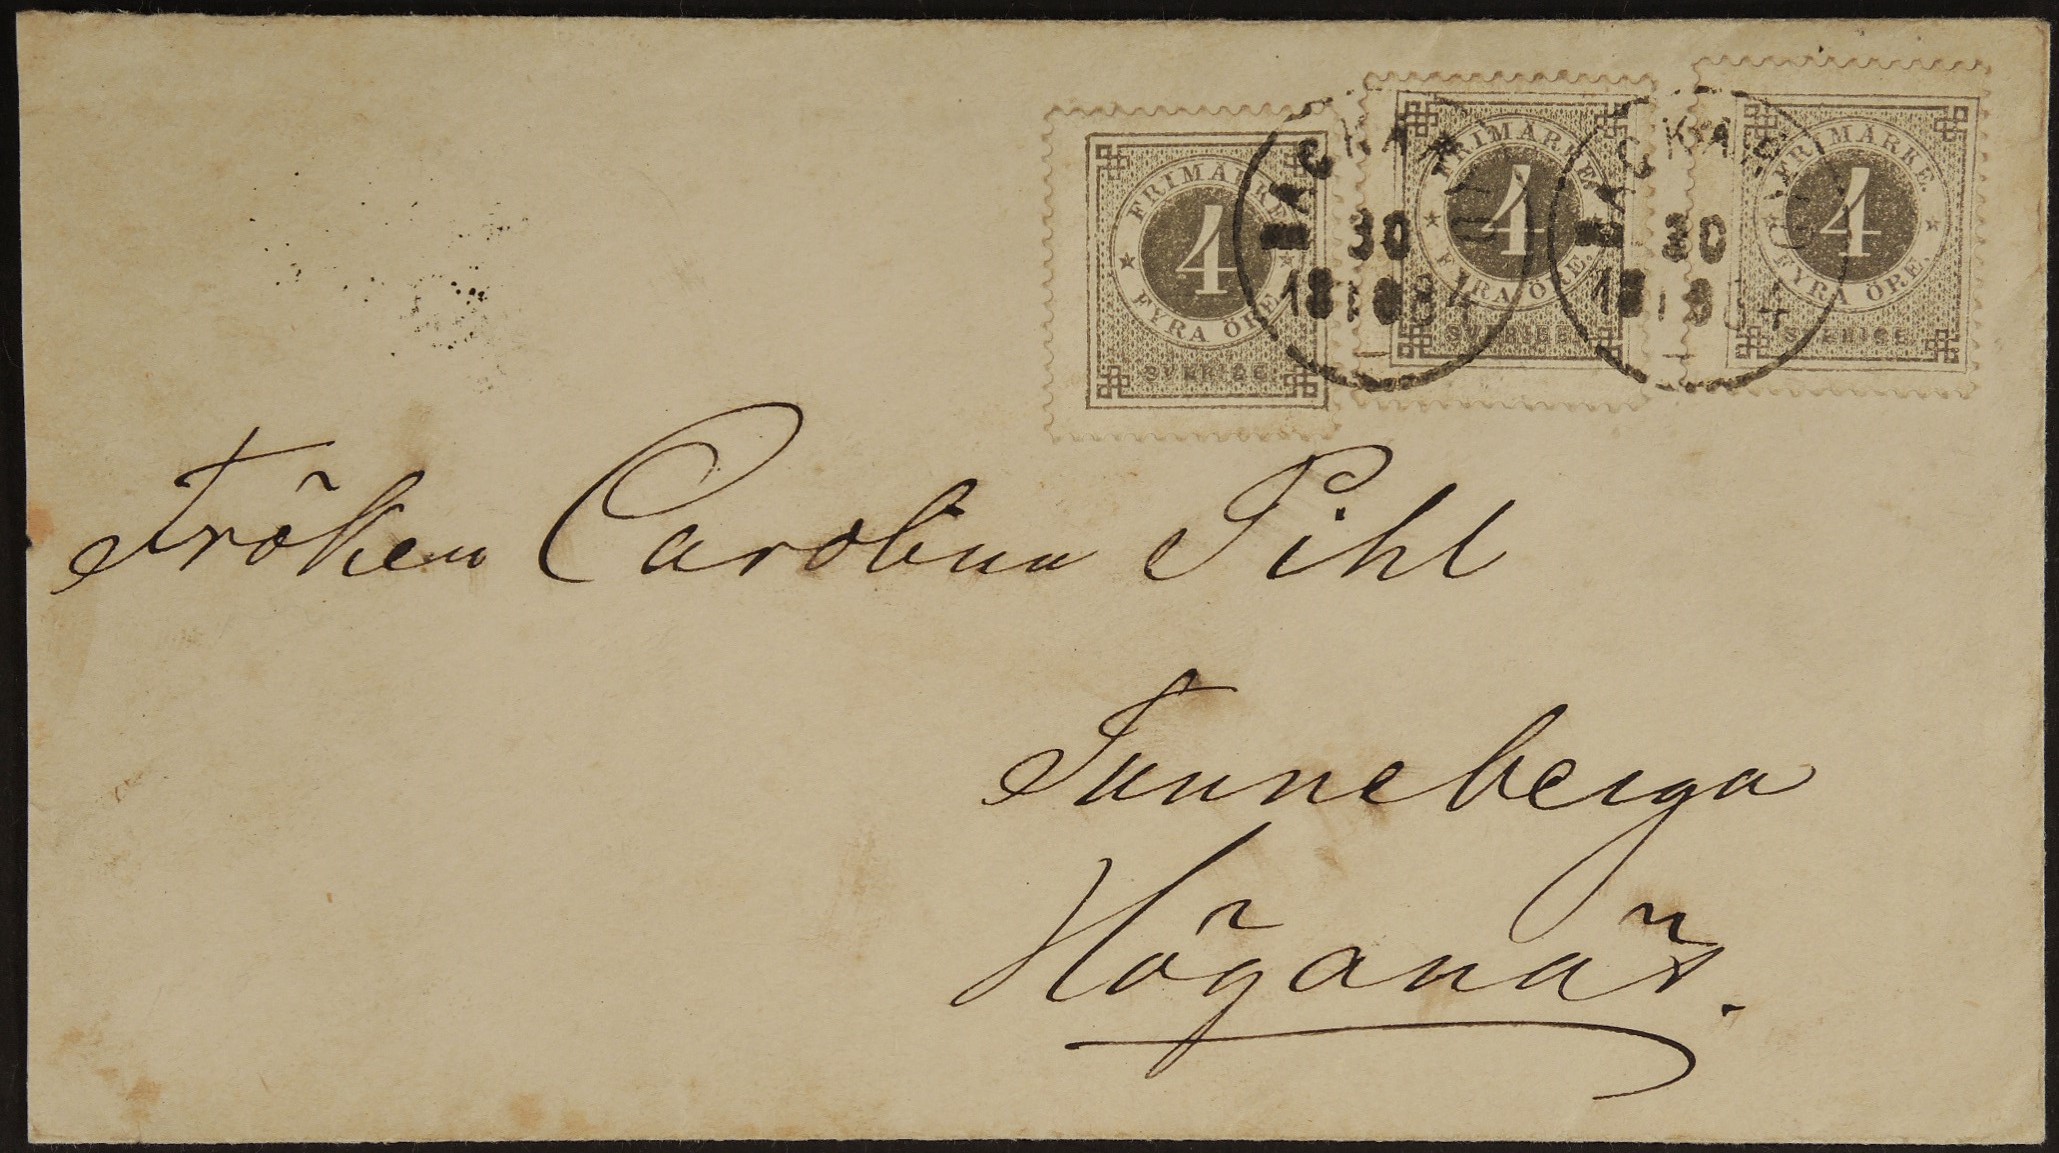 FRIMÄRKE.
4
FYRA ÖRE.
SVERIGE
FRIMÄRKE.
4
FYRA ÖRE.
SVERIGE
FRIMÄRKE.
4
FYRA ÖRE.
SVERIGE
30
1884
Fröken Carolina Pihl
Tunneberga
Höganäs.